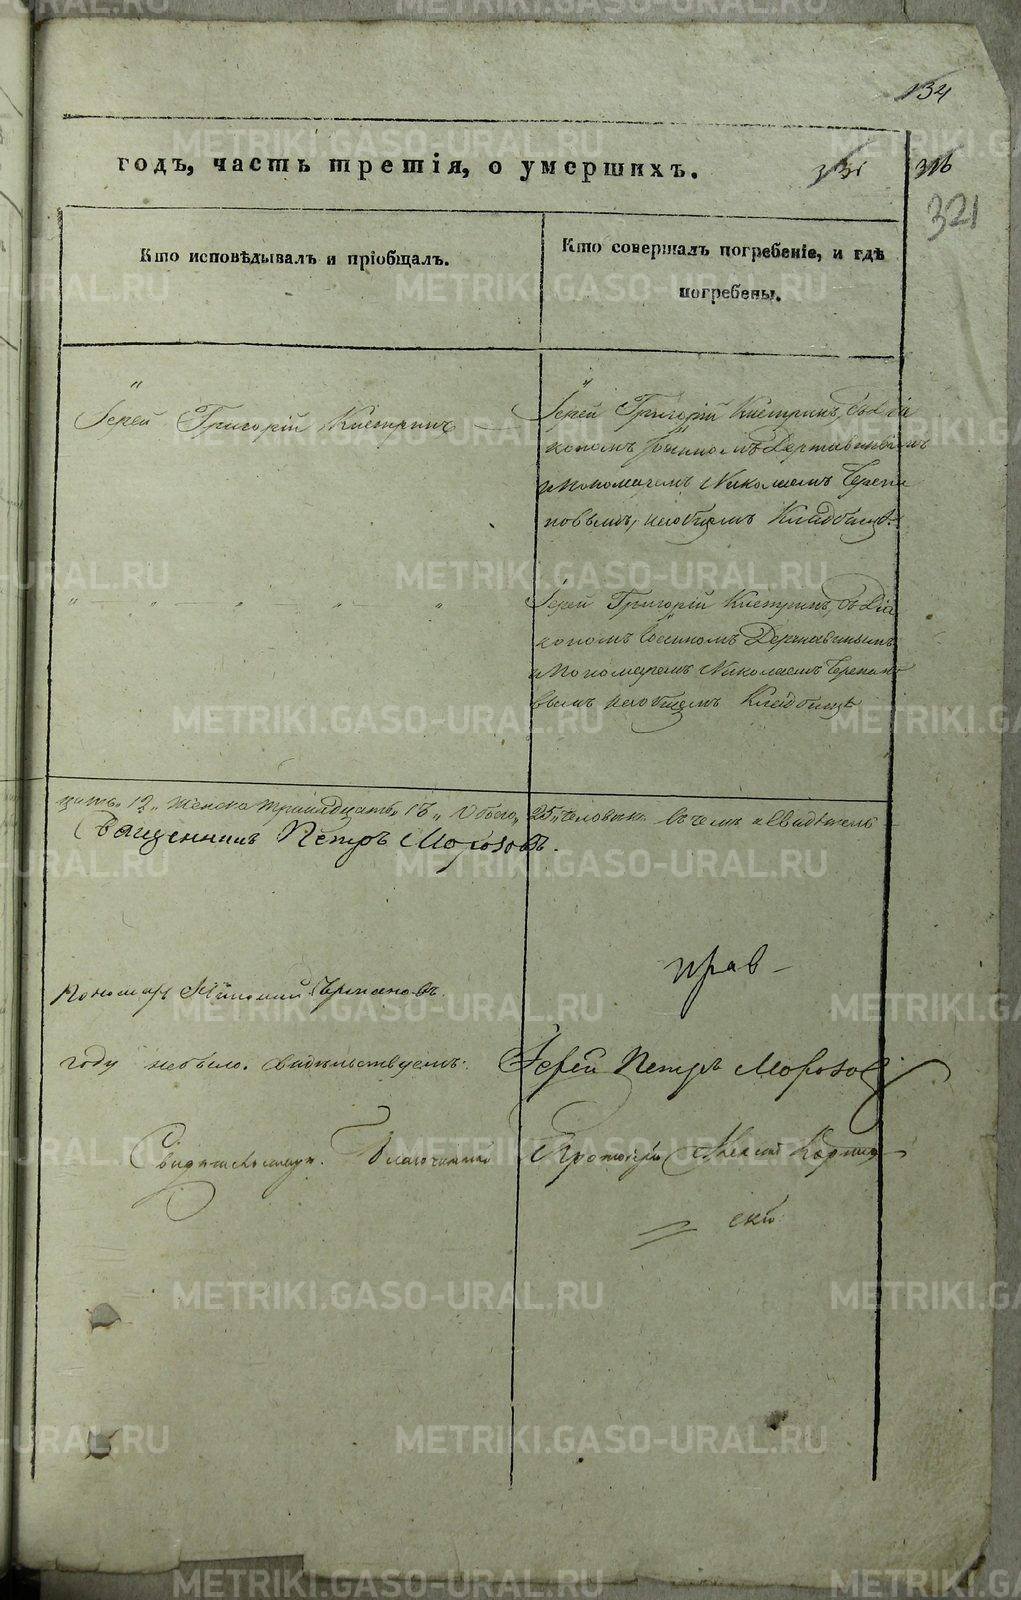 134
годъ, часть третія, о умершихъ.
331
316
321
Кто исповѣдывалъ и пріобщалъ.
Кто совершалъ погребеніе, и гдѣ
погребены.
Іерей Григорій Кистринъ
Іерей Григорій Кистринъ, съ Діа
кономъ Іоанномъ Державинымъ
и Пономаремъ Николаемъ Черепа
новымъ, на общемъ Кладбищѣ.
" — " — " — " — "
Іерей Григорій Кистринъ, съ Діа
кономъ Іоанномъ Державинымъ
и Пономаремъ Николаемъ Черепано
вымъ на общемъ Кладбищѣ
цать 12, женска тринадцать 13, обоего 25 человѣкъ въ чемъ и Свидѣтель
Священникъ Петръ Морозовъ.
прав
Пономарь Николай Черпановъ
году небыло. свидѣльствуемъ: Іерей Петръ Морозов
Благочинный Протоіерей Алексій
скій
METRIKI.GASO-URAL.RU